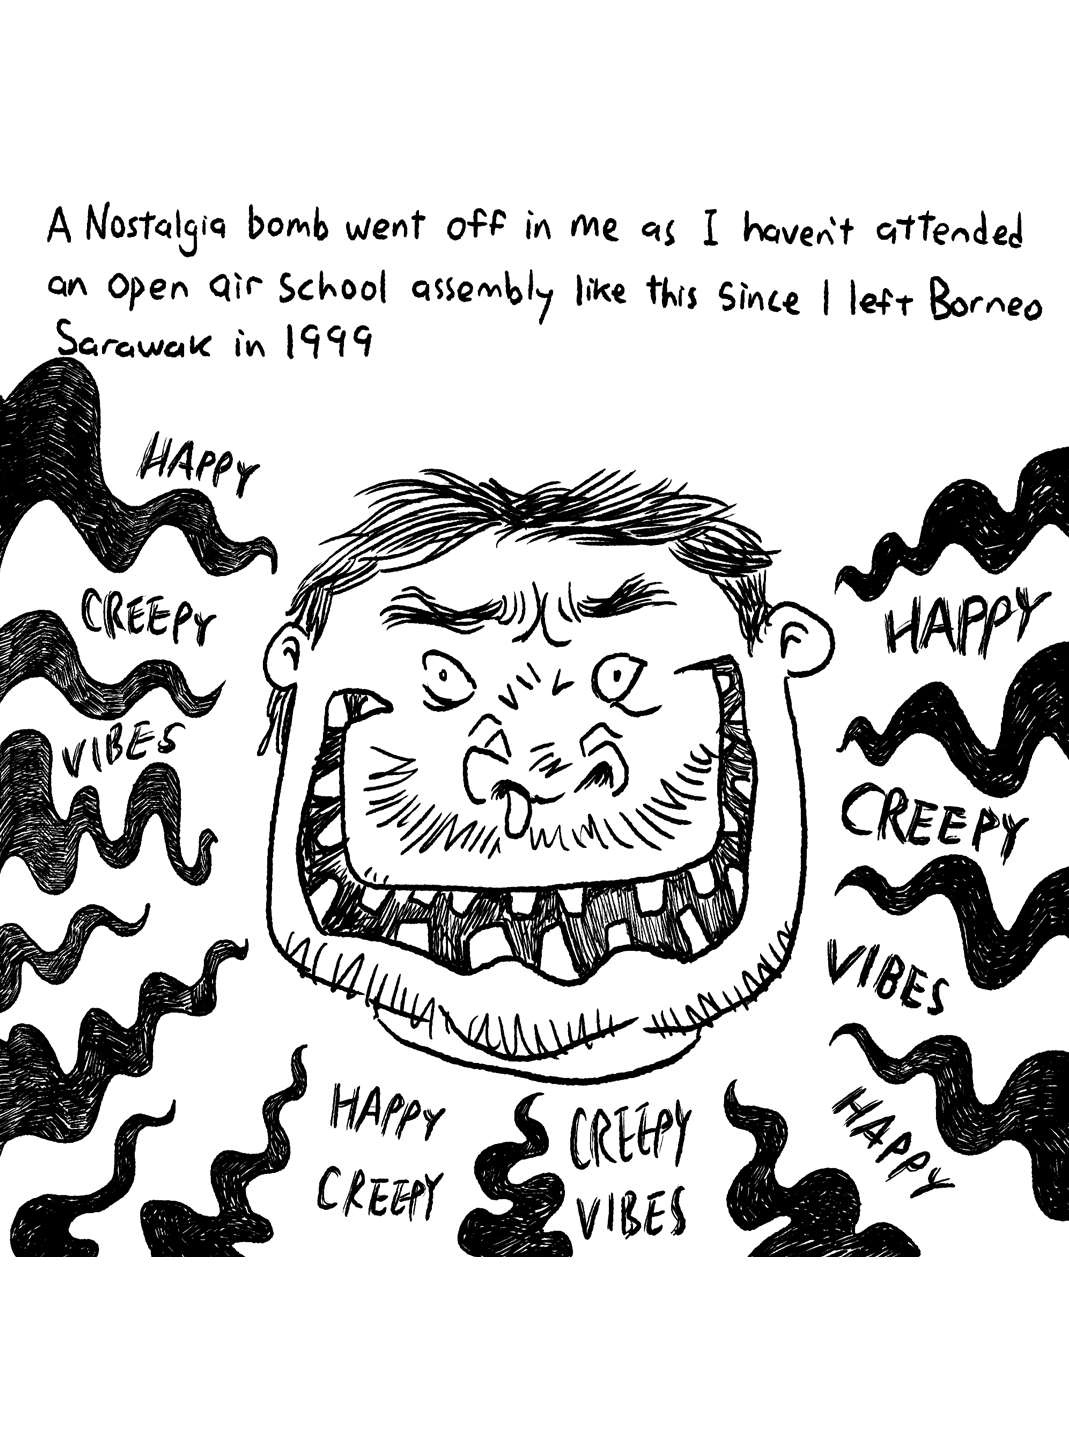 A Nostalgia bomb went off in me as I haven't attended
an open air school assembly like this since I left Borneo
Sarawak in 1999
HAPPY
CREEPY
VIBES
HAPPY
CREEPY
VIBES
HAPPY
CREEPY
CREEPY
VIBES
HAPPY